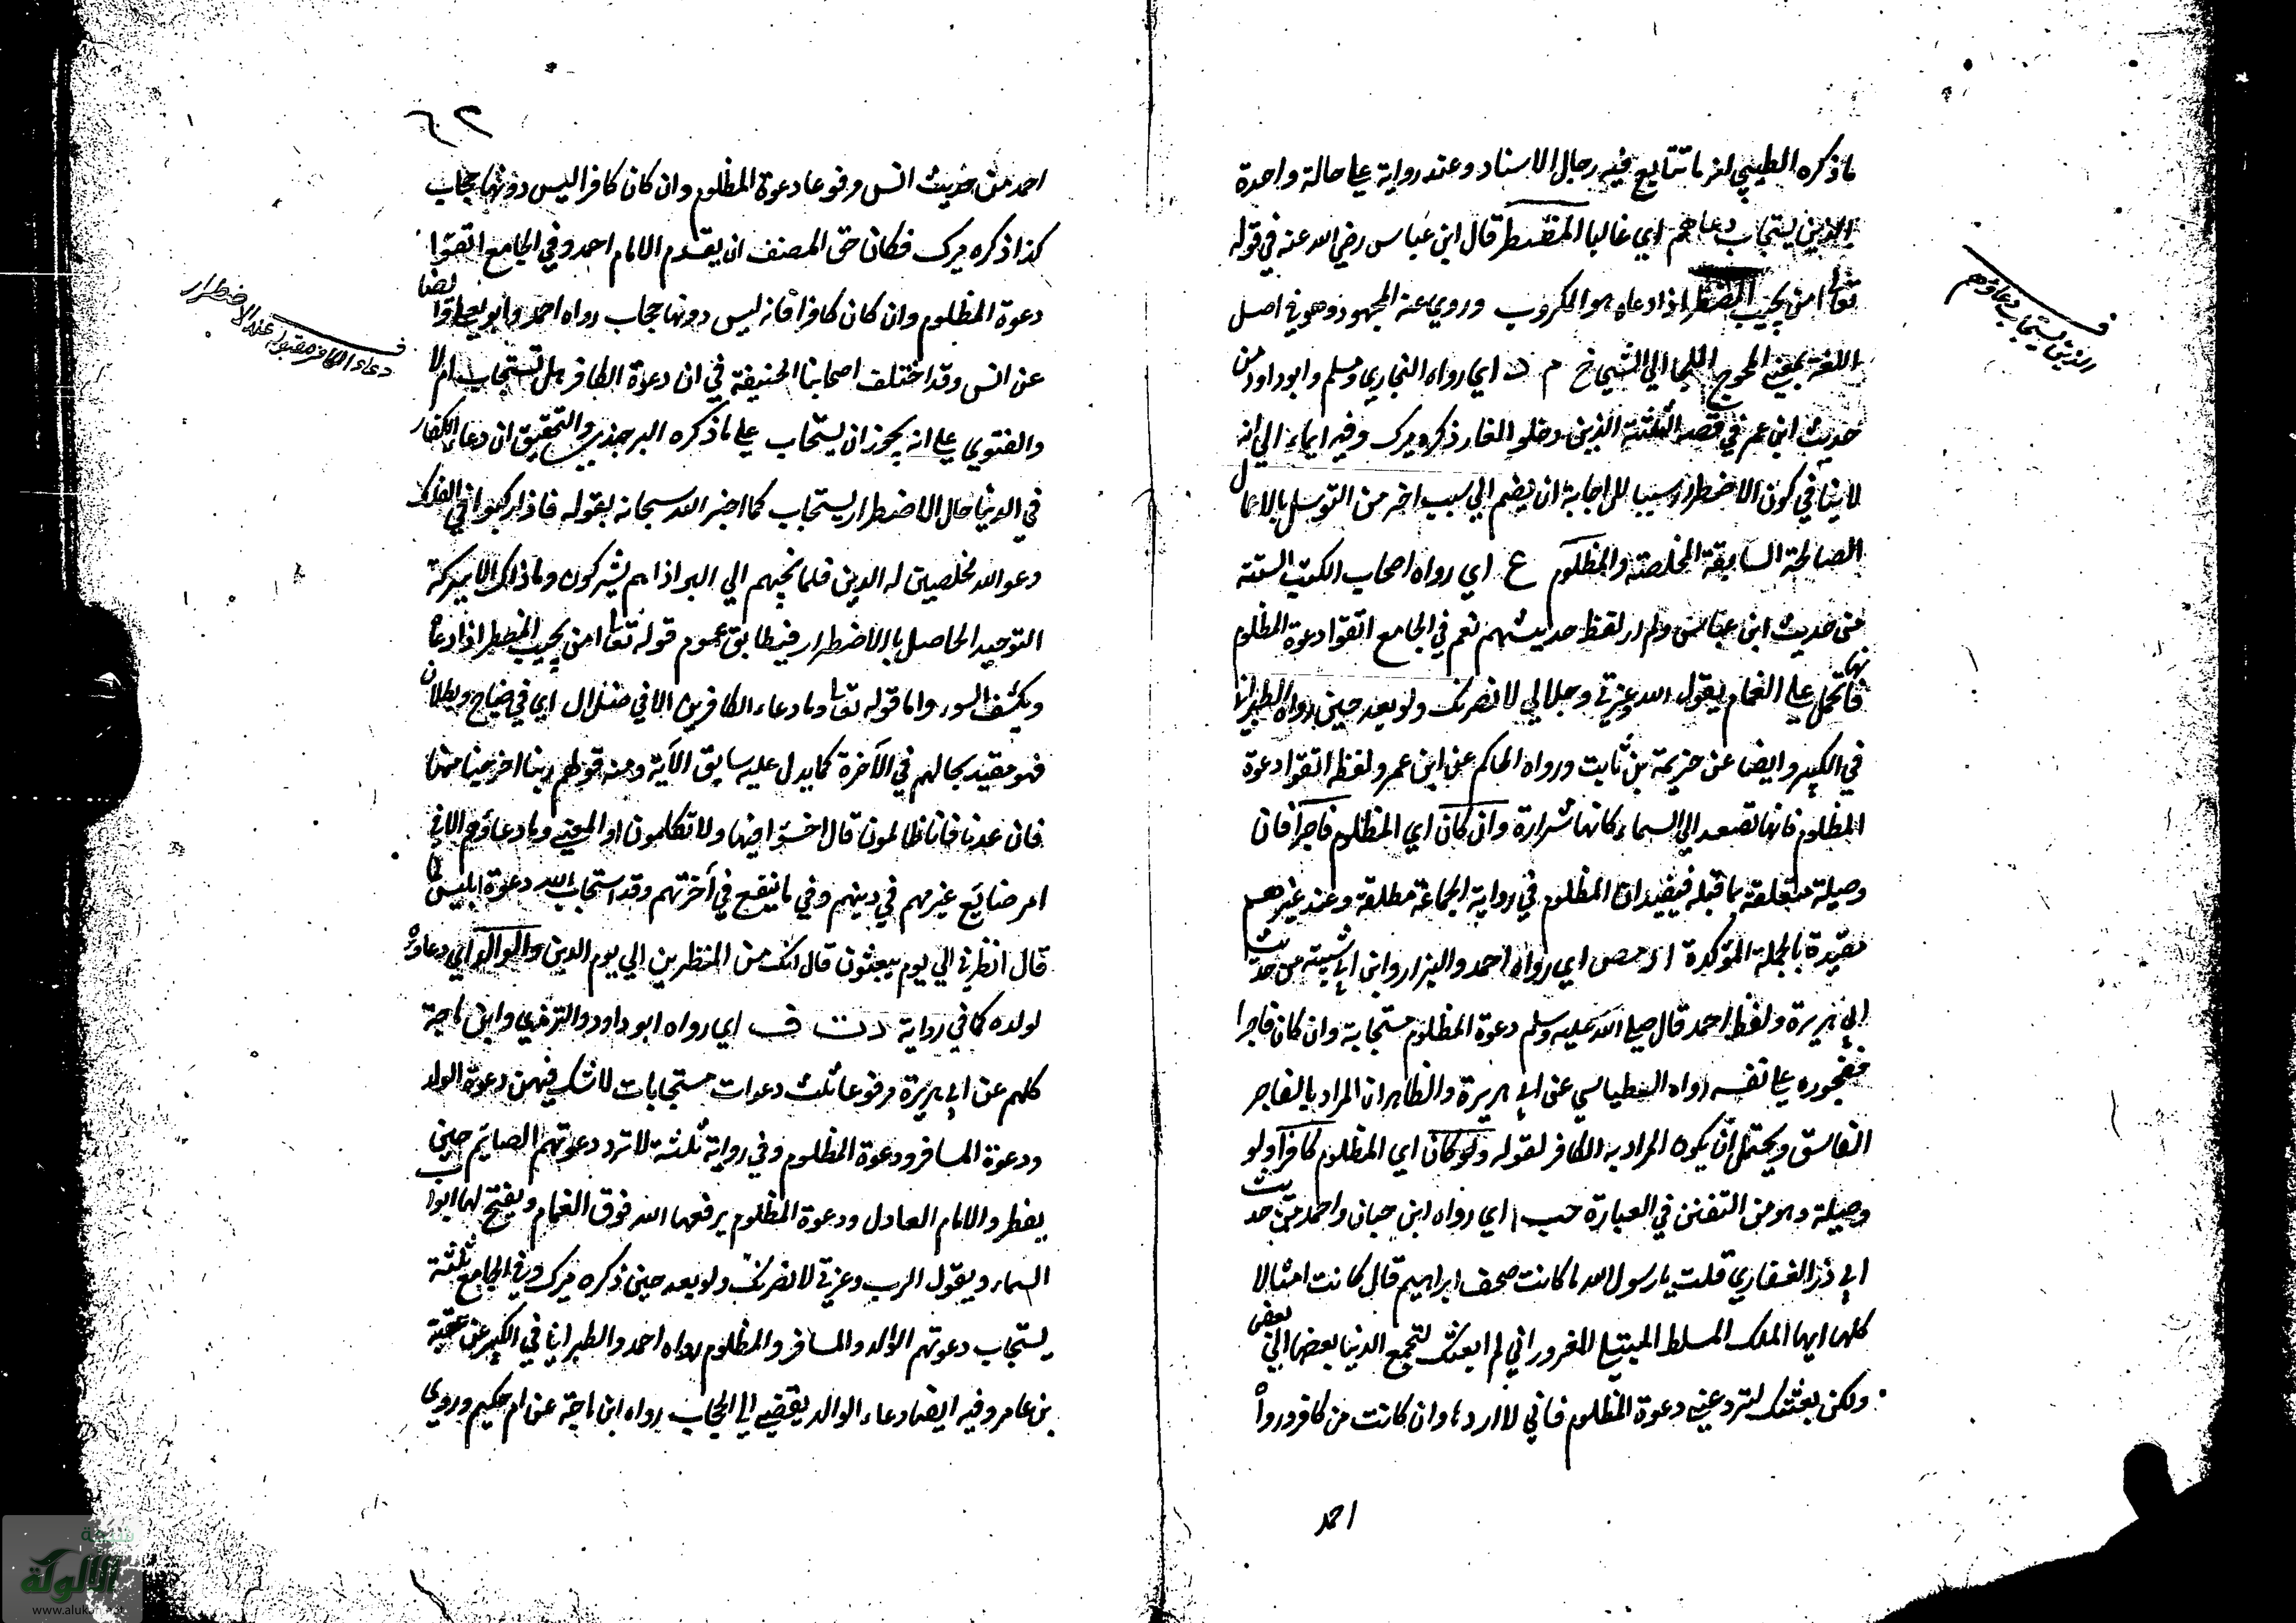 ما ذكره الطيبي لنر ما تتابع فيه رجال الاسناد وعند رواية علي حالة واحدة
الذين يستجاب دعاهم اي غالبا المضطر قال ابن عباس رضي الله عنه في قوله
تعا امن يجيب المضطر اذا دعاه هو المكروب وروي عنه المجهود وهو في اصل
اللغة بمعني المحوج الملجا الي الشي خ م د اي رواه البخاري ومسلم وابو داود من
حديث ابن عمر في قصة الثلثة الذين دخلوا الغار ذكره ميرك وفيه ايماء الي انه
لا ينافي كون الاضطرار سببا للاجابة ان يضم الي سبب اخر من التوسل بالاعمال
الصالحة السابقة المخلصة والمظلوم ع اي رواه اصحاب الكتب الستة
من حديث ابن عباس ولم ار لفظ حديثهم نعم في الجامع اتقوا دعوة المظلوم
فانها تحمل علي الغمام يقول الله وعزتي وجلالي لانصرنك ولو بعد حين رواه الطبراني
في الكبير وايضا عن خزيمة بن ثابت ورواه الحاكم عن ابن عمر ولفظه اتقوا دعوة
المظلوم فانها تصعد الي السماء كانها شرارة وان كان اي المظلوم فاجرا فان
وصيلة متعلقة بما قبله فيفيد ان المظلوم في رواية الجماعة مطلقة وعند غيرهم
مقيدة بالجملة المؤكدة ا ر مص اي رواه احمد والبزار وابن ابي شيبة من حديث
ابي هريرة ولفظ احمد قال صلي الله عليه وسلم دعوة المظلوم مستجابة وان كان فاجرا
ففجوره علي نفسه رواه الطيالسي عن ابي هريرة والظاهر ان المراد بالفاجر
الفاسق ويحتمل ان يكون المراد به الكافر لقوله ولو كان اي المظلوم كافرا ولو
وصيلة وهو من التفنن في العبارة حب ا اي رواه ابن حبان واحمد من حديث
ابي ذر الغفاري قلت يا رسول الله ما كانت صحف ابراهيم قال كانت امثالا
كلها ايها الملك المسلط المبتلي المغرور اني لم ابعثك لتجمع الدنيا بعضها الي بعض
ولكن بعثتك لترد عني دعوة المظلوم فاني لا اردها وان كانت من كافر ورواه
احمد
الذين يستجاب دعاؤهم
احمد من حديث انس مرفوعا دعوة المظلوم وان كان كافرا ليس دونها حجاب
كذا ذكره ميرك فكان حق المصنف ان يقدم الامام احمد وفي الجامع اتقوا
دعوة المظلوم وان كان كافرا فانه ليس دونها حجاب رواه احمد وابو يعلي وايضا
عن انس وقد اختلف اصحابنا الحنيفة في ان دعوة الكافر هل تستجاب ام لا
والفتوي علي انه يجوز ان يستجاب علي ما ذكره البرجندي والتحقيق ان دعاء الكفار
في الدنيا حال الاضطرار يستجاب كما اخبر الله سبحانه بقوله فاذا ركبوا في الفلك
دعو الله مخلصين له الدين فلما نجيهم الي البر اذا هم يشركون وما ذاك الا ببركة
التوحيد الحاصل بالاضطرار فيطابق عموم قوله تعا امن يجيب المضطر اذا دعاه
ويكشف السوء واما قوله تعا وما دعاء الكافرين الا في ضلال اي في ضياع وبطلان
فهو مقيد بحالهم في الآخرة كما يدل عليه سابق الآية ومنه قولهم ربنا اخرجنا منها
فان عدنا فانا ظالمون قال اخسؤا فيها ولا تكلمون او المعني وما دعاؤهم الا في
امر ضائع غير مهم في دينهم وفي ما ينفع في آخرتهم وقد استجاب الله دعوة ابليس
قال انظرني الي يوم يبعثون قال انك من المنظرين الي يوم الدين والوالد اي دعاؤه
لولده كما في رواية د ت ق اي رواه ابو داود والترمذي وابن ماجة
كلهم عن ابي هريرة مرفوعا ثلث دعوات مستجابات لا شك فيهن دعوة الوالد
ودعوة المسافر ودعوة المظلوم وفي رواية ثلثة لا ترد دعوتهم الصائم حين
يفطر والامام العادل ودعوة المظلوم يرفعها الله فوق الغمام ويفتح لها ابواب
السماء ويقول الرب وعزتي لانصرنك ولو بعد حين ذكره ميرك وفي الجامع ثلثة
يستجاب دعوتهم الوالد والمسافر والمظلوم رواه احمد والطبراني في الكبير عن عقبة
بن عامر وفيه ايضا دعاء الوالد يفضي الي الحجاب رواه ابن ماجة عن ام حكيم وروي
دعاء الكافر مقبول عند الاضطرار
شبكة
الألوكة
www.alukah.net